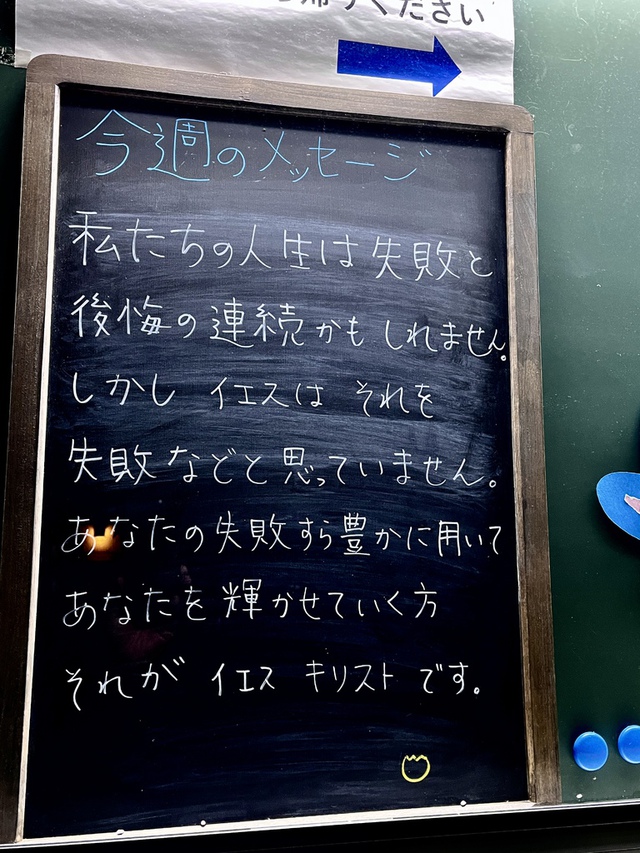 ください
今週のメッセージ
私たちの人生は失敗と
後悔の連続かもしれません。
しかし イエスは それを
失敗などと思っていません。
あなたの失敗すら豊かに用いて
あなたを輝かせていく方
それが イエス キリスト です。